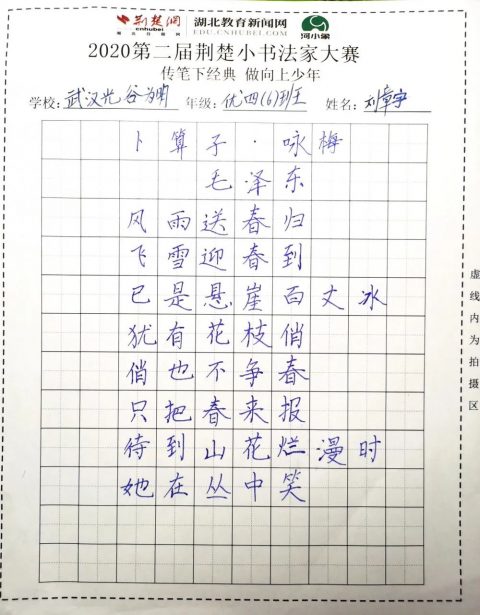 荆楚网 湖北教育新闻网
cnhubei EDU.CNHUBEI.COM 河小象
2020第二届荆楚小书法家大赛
传笔下经典 做向上少年
学校: 武汉光谷为明 年级: 优四(6)班 姓名: 刘章宇
卜算子·咏梅
毛泽东
风雨送春归
飞雪迎春到
已是悬崖百丈冰
犹有花枝俏
俏也不争春
只把春来报
待到山花烂漫时
她在丛中笑
虚线内为拍摄区